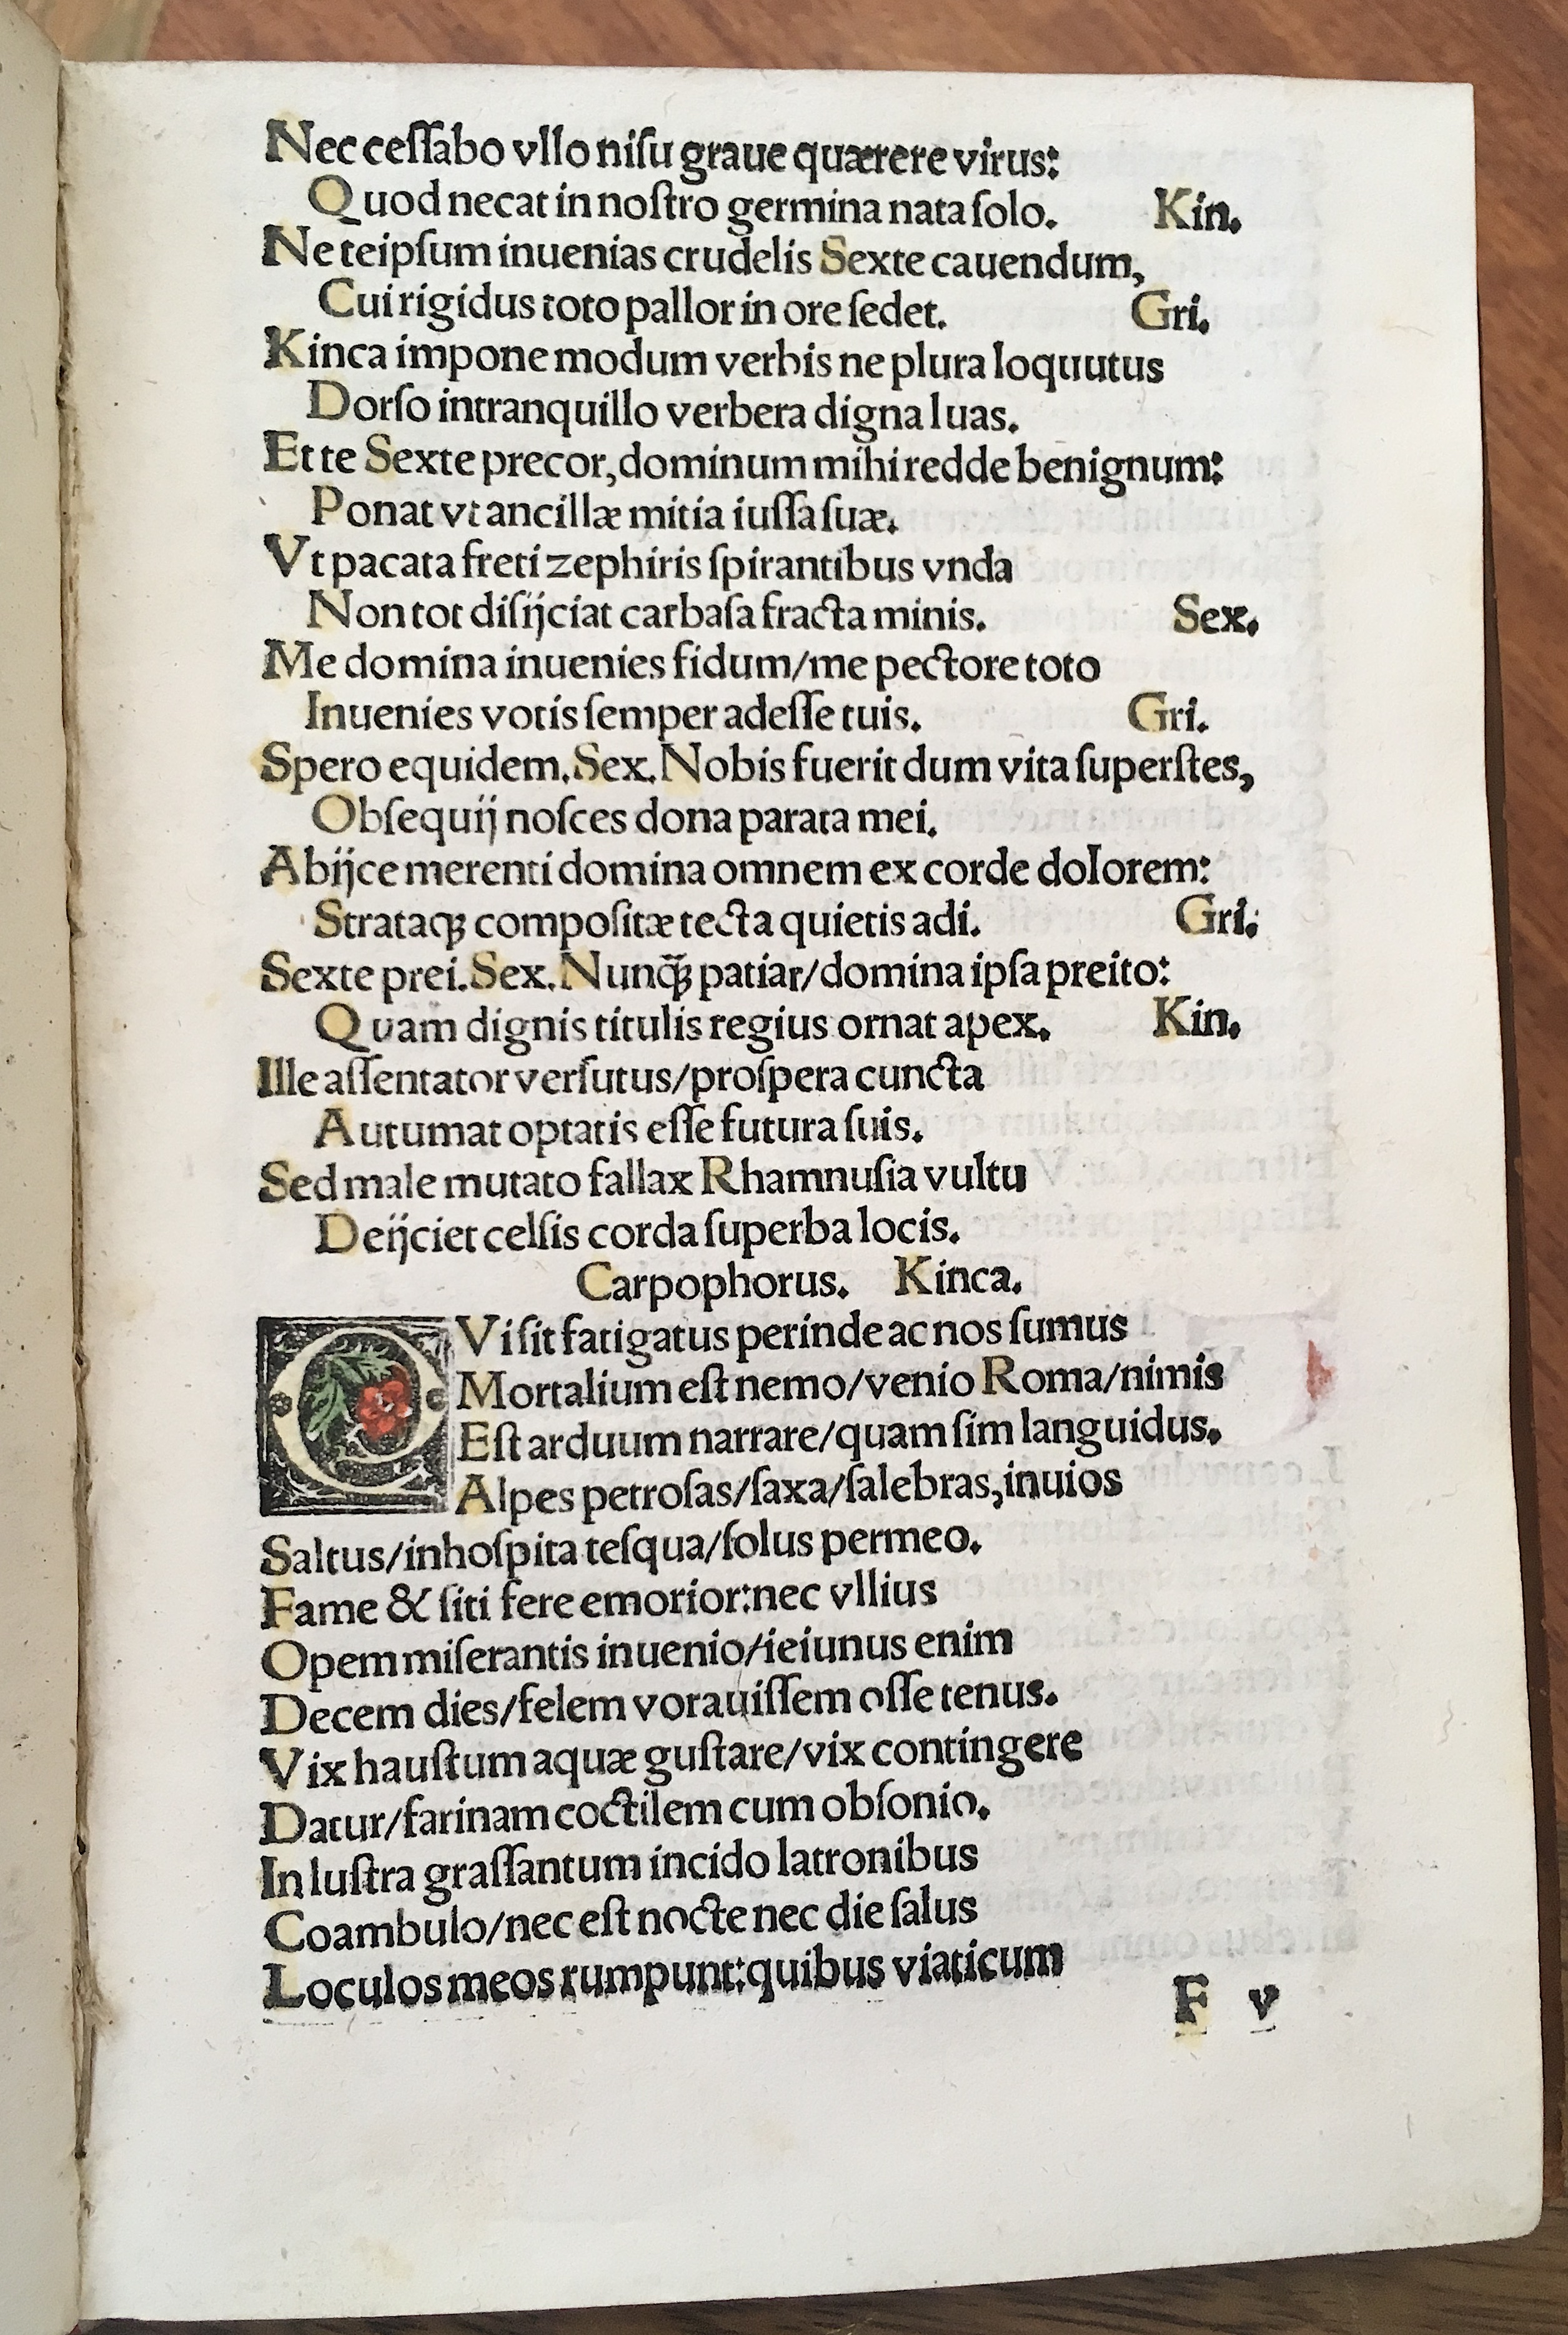 Nec ceſſabo vllo niſu graue quærere virus:
Quod necat in noſtro germina nata ſolo. Kin.
Ne teipſum inuenias crudelis Sexte cauendum,
Cui rigidus toto pallor in ore ſedet. Gri.
Kinca impone modum verbis ne plura loquutus
Dorſo intranquillo verbera digna luas.
Et te Sexte precor, dominum mihi redde benignum:
Ponat vt ancillæ mitia iuſſa ſuæ.
Vt pacata freti zephiris ſpirantibus vnda
Non tot diſijciat carbaſa fracta minis. Sex.
Me domina inuenies fidum/me pectore toto
Inuenies votis ſemper adeſſe tuis. Gri.
Spero equidem. Sex. Nobis fuerit dum vita ſuperſtes,
Obſequij noſces dona parata mei.
Abijce merenti domina omnem ex corde dolorem:
Strataqꝫ compoſitæ tecta quietis adi. Gri.
Sexte prei. Sex. Nunq̃ꝫ patiar/domina ipſa preito:
Quam dignis titulis regius ornat apex. Kin.
Ille aſſentator verſutus/proſpera cuncta
Autumat optatis eſſe futura ſuis.
Sed male mutato fallax Rhamnuſia vultu
Deijciet celſis corda ſuperba locis.
Carpophorus. Kinca.
QVi ſit fatigatus perinde ac nos ſumus
Mortalium eſt nemo/venio Roma/nimis
Eſt arduum narrare/quam ſim languidus.
Alpes petroſas/ſaxa/ſalebras, inuios
Saltus/inhoſpita teſqua/ſolus permeo.
Fame & ſiti fere emorior: nec vllius
Opem miſerantis inuenio/ieiunus enim
Decem dies/felem vorauiſſem oſſe tenus.
Vix hauſtum aquæ guſtare/vix contingere
Datur/farinam coctilem cum obſonio.
In luſtra graſſantum incido latronibus
Coambulo/nec eſt nocte nec die ſalus
Loculos meos rumpunt: quibus viaticum
F v